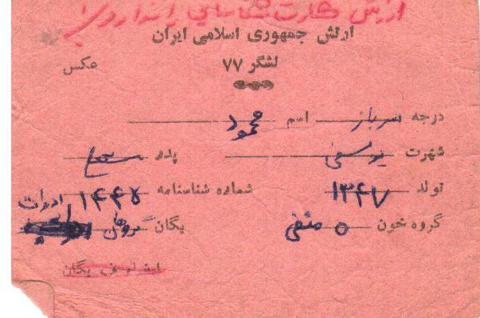 ارزش کارت شناسایی را ندارد
ارتش جمهوری اسلامی ایران
لشگر ۷۷
عکس
درجه سرباز اسم محمود
شهرت یوسفی پدر
تولد ۱۳۴۷ شماره شناسنامه ۱۴۴۵ ادوات
گروه خون o منفی یگان گروهان
یگان